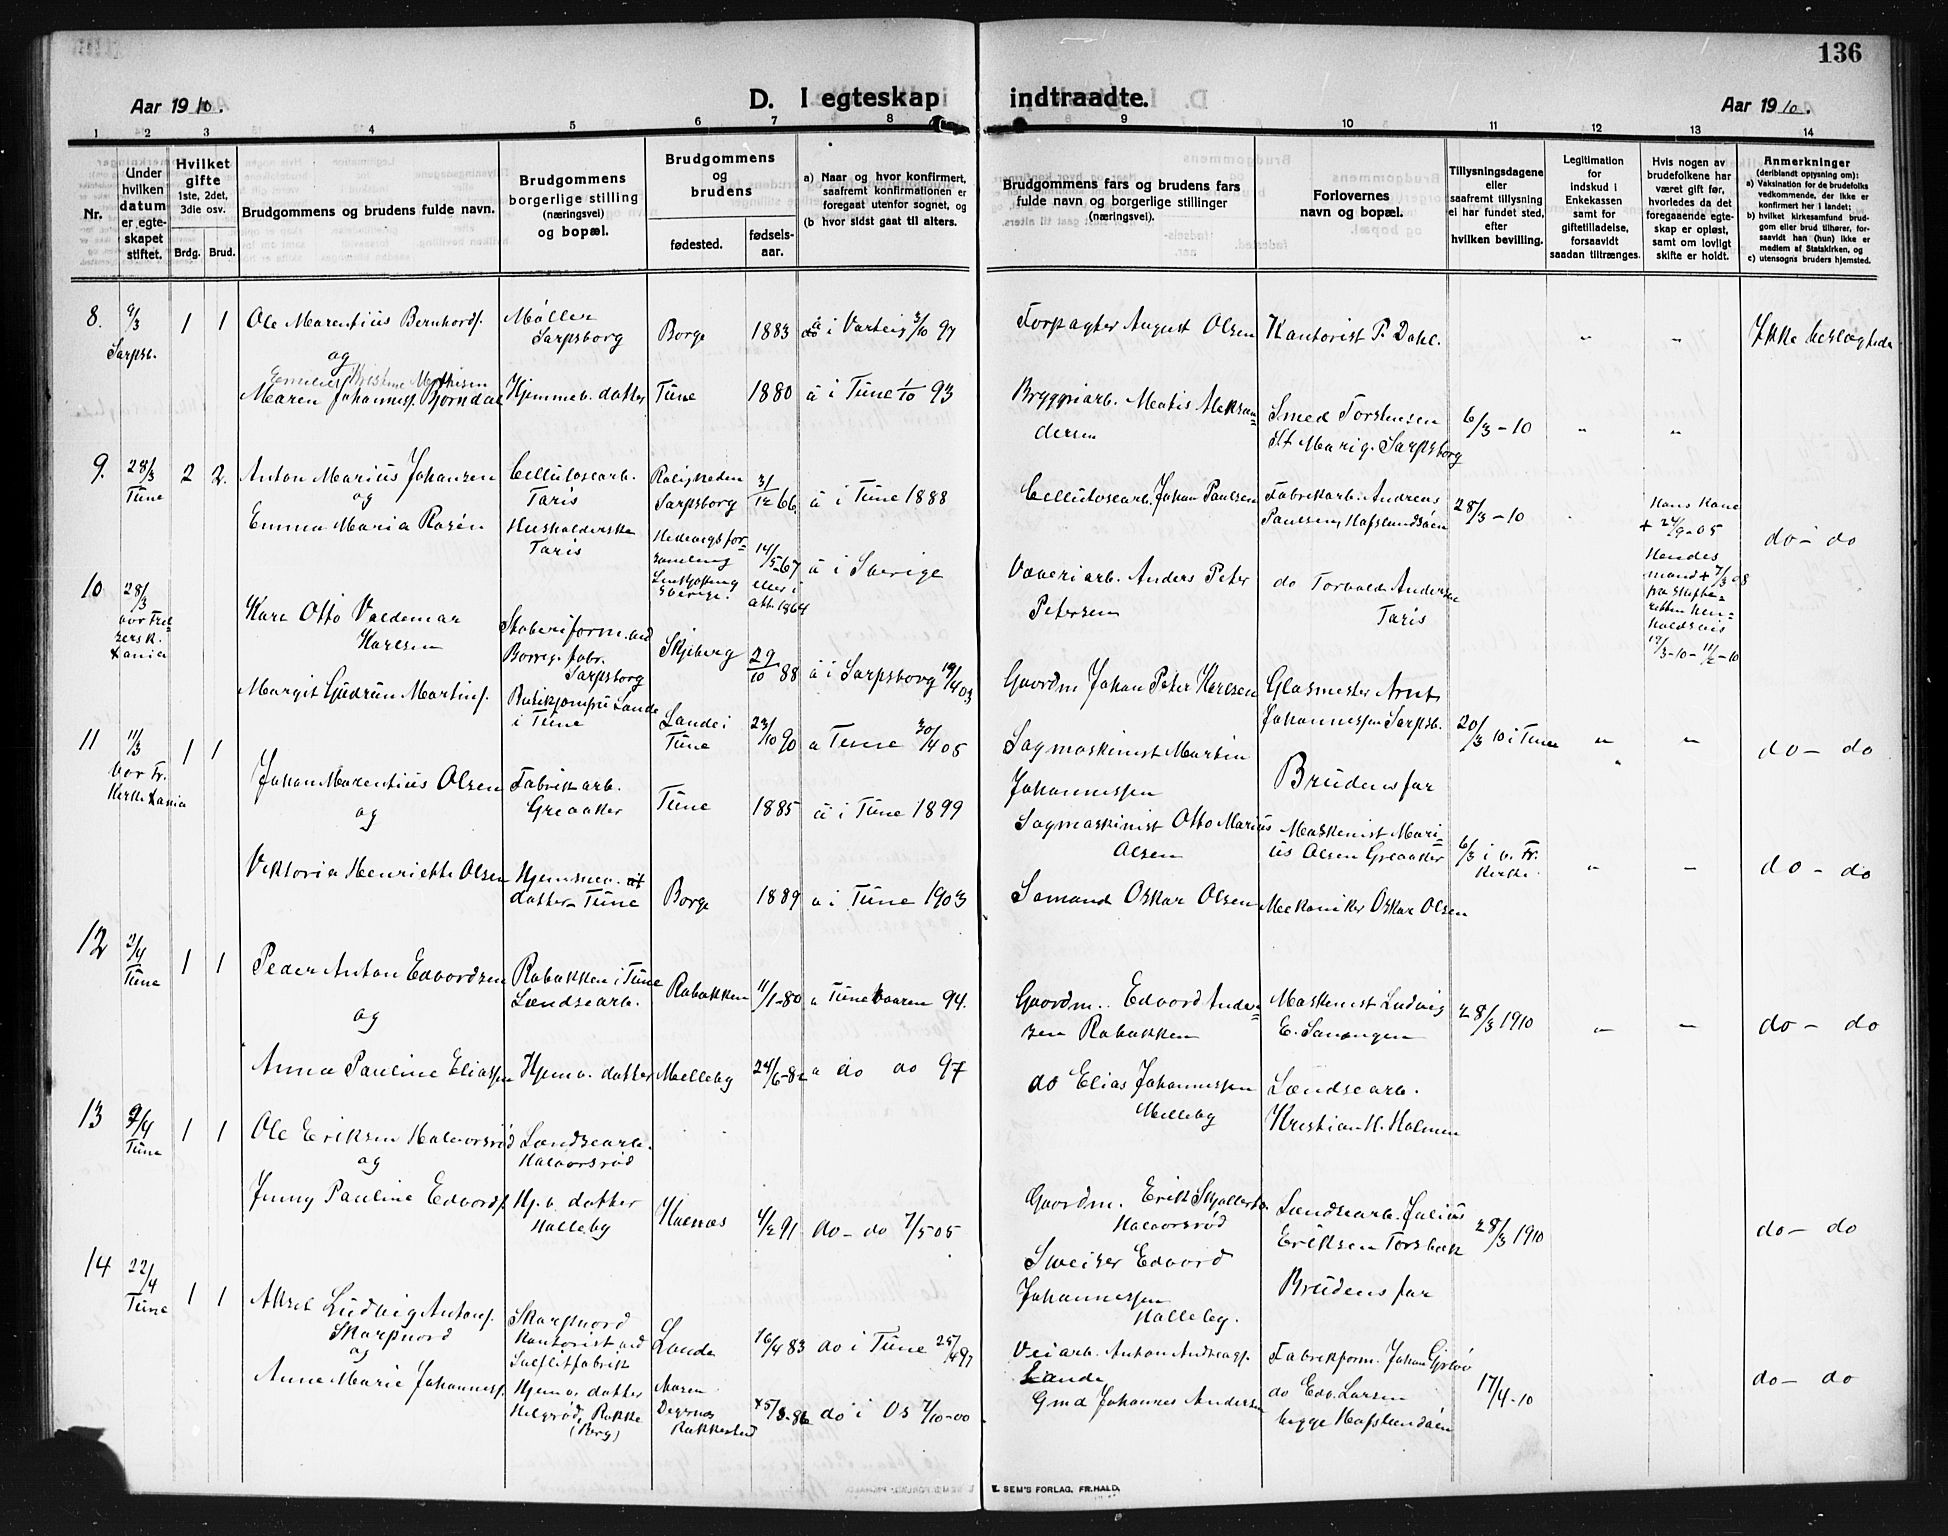 136
Aar 1910.
D. I egteskap indtraadte.
Aar 1910.
1 2 3 4 5 6 7 8 9 10 11 12 13 14
Nr.
Under hvilken datum er egte-skapet stiftet.
Hvilket gifte 1ste, 2det, 3die osv.
Brdg. Brud.
Brudgommens og brudens fulde navn.
Brudgommens borgerlige stilling (næringsvei) og bopæl.
Brudgommens og brudens
fødested.
fødsels-aar.
a) Naar og hvor konfirmert, saafremt konfirmationen er foregaat utenfor sognet, og
(b hvor sidst gaat til alters.
Brudgommens fars og brudens fars fulde navn og borgerlige stillinger (næringsvei).
Forlovernes navn og bopæl.
Tillysningsdagene eller saafremt tillysning ei har fundet sted, efter hvilken bevilling.
Legitimation for indskud i Enkekassen samt for giftetilladelse, forsaavidt saadan tiltrænges.
Hvis nogen av brudefolkene har været gift før, hvorledes da det foregaaende egte-skap er opløst, samt om lovligt skifte er holdt.
Anmerkninger (deriblandt opysning om):
a) Vaksination for de brudefolks vedkommende, der ikke er konfirmert her i landet;
b) hvilket kirkesamfund brud-gom eller brud tilhører, for-saavidt han (hun) ikke er medlem af Statskirken, og
c) utensogns bruders hjemsted.
8. 9/3 Sarpsb. 1 1
Ole Marentius Bernhards.
og
Møller Sarpsborg
Borge 1883 a i Varteig 3/10 97
Forpagter August Olsen
Kontorist P. Dahl.
" " Ikke beslægtede
Maren Johannesf. Bjørndal
Hjemmev. datter
Tune 1880 a i Tune 1/10 93
Bryggeriarb. Matis Aleksan=
dersen
Smed Torstensen
St. Marig. Sarpsborg
6/3-10 " "
9. 28/3 Tune 2 2.
Anton Marius Johansen
og
Cellulosearb.
Taris
Sarpsborg 31/12 66. a i Tune 1888
Cellulosearb. Johan Paulsen
Fabrikarb. Andreas
Paulsen, Hafslundsøen
28/3-10
Hans Kone
+ 24/9-05
do- do
Emma Maria Rosén
Husholderske
Taris
Hedevigsfor=
samling
Sverige.
14/5-67
eller i
att. 1864
a i Sverige
Væveriarb. Anders Peter
Petersen
do Torvald Andersen
Taris
Hendes
mand + 7/3 08
10 28/3
Karl Otto Valdemar
Karlsen
Borreg. fabr.
Sarpsborg
Skjeberg 29/10 88 a i Sarpsborg 19/4 03
Gaardm Johan Peter Karlsen
Glasmester Arnt
Johannessen Sarpsb.
20/3 10 i Tune
" " do- do
Margit Gudrun Martins.
i Tune
Lande i
Tune
23/10 90 a Tune 30/4 05
Sagmaskinist Martin
Johannessen
Brudens far
11 11/3
Vor Fr.
Kirke
1 1
Johan Marentius Olsen
og
Fabrikarb.
Greaaker
Tune 1885 a i Tune 1899
Sagmaskinist Otto Marius
Olsen
Maskinist Mari=
us Olsen Greaaker
6/3 i v. Fr.
Kirke.
" " do - do
Viktoria Henriette Olsen
Hjemmev.
datter Tune
Borge 1889 a i Tune 1903
Sømand Oskar Olsen
Mekaniker Oskar Olsen
12 2/4 Tune 1 1
Peder Anton Edvardsen
og
Rabakken i Tune
Landsearb.
Rabakken 11/1-80 a Tune Vaaren 94.
Gaardm. Edvard Ander=
sen Rabakken
Maskinist Ludvig
E. Sanengen
28/3 1910
" " do - do
Anna Pauline Eliassen
Hjemv. datter
Melleby 24/6-82 a do do 97
do Elias Johannessen
Melleby
Landsearb.
Kristian H. Holmen
13 2/4 Tune 1 1
Ole Eriksen Halvorsrød
og
Landsearb.
Halvorsrød
Gaardm. Erik
Halvorsrød
Landsearb. Julius
Eriksen Torsbæk
28/3 1910
do- do
Jenny Pauline Edvards.
Hj.v. datter
Halleby
4/2 91 do- do 7/5 05
Sweiser Edvard
Johannessen
Halleby.
Brudens far
14 22/4 Tune 1 1
Aksel Ludvig Antons.
Skarpnord
og
Skarpnord
Kontorist ved
Sulfitfabrik
Lande 16/4 83 do i Tune 25/4 97
Veiarb. Anton Andreass.
Lande
Fabrikform. Johan
17/4-10
do- do
Anne Marie Johannes.
Hjemv. datter
Helgerød, Rokke
(Berg)
Degernes
Rakkestad
do i Os 7/10-00
Gmd Johannes Andersen
do Edv. Larsen
begge Hafslundsøen
E. SEM'S FORLAG, FR.HALD.